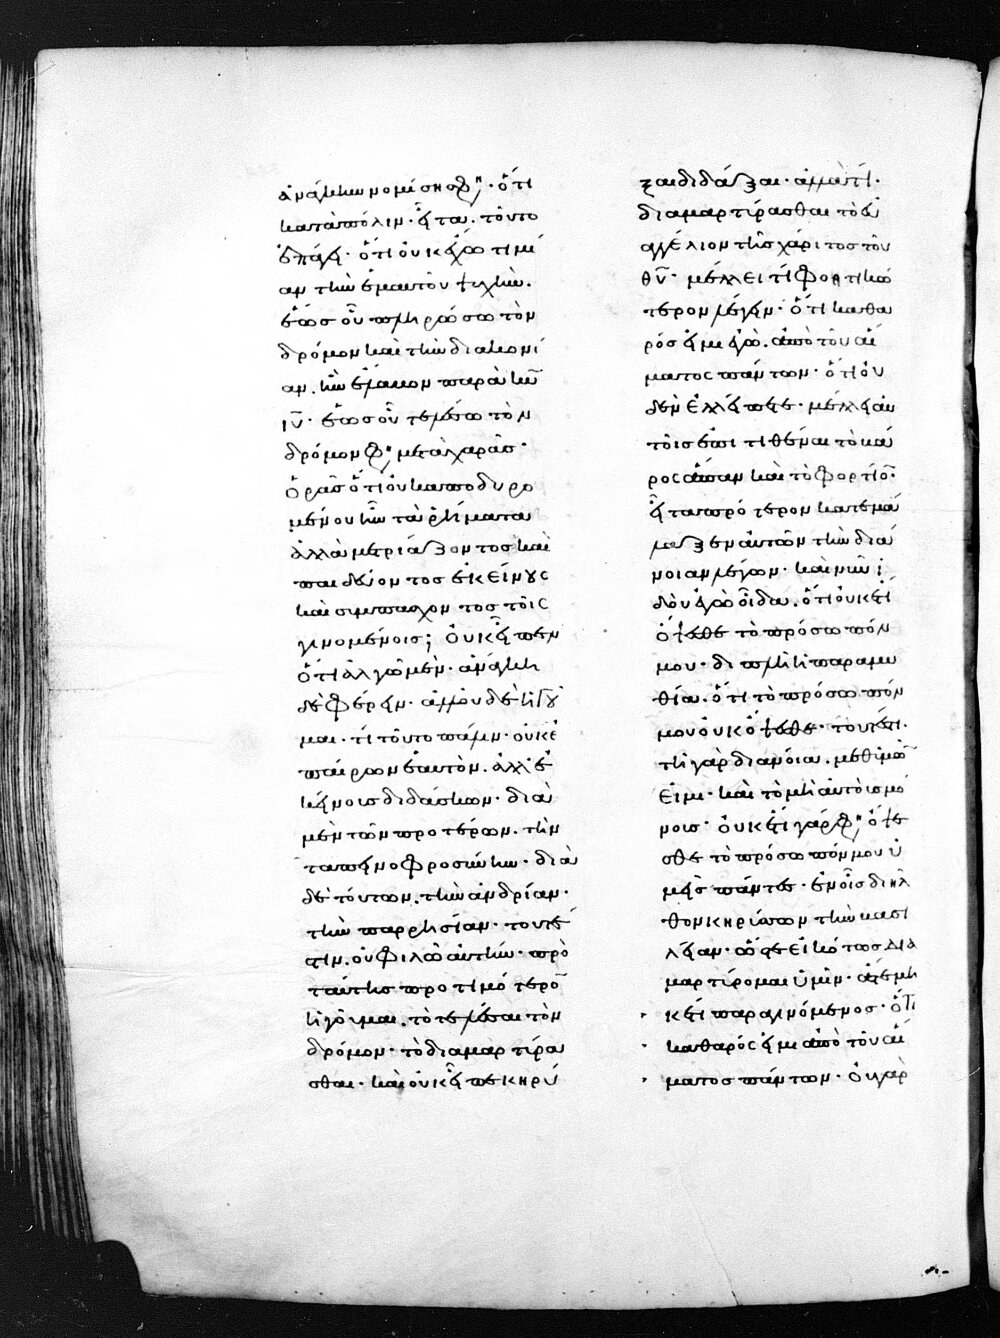 ἀνάγκην νομίσητε φη· ὅτι
κατὰ πόλιν. εἶτα. τοῦτο
ἐπάγει· ὅτι οὐκ ἔχω τιμί
αν τὴν ἐμαυτοῦ ψυχὴν.
ἕως οὗ πληρώσω τὸν
δρόμον καὶ τὴν διακονί
αν. ἣν ἔλαβον παρὰ κυ
ιυ· ἕως οὗ τελέσω τὸν
δρόμον φη μετὰ χαρᾶς·
ὁρᾶς ὅτι οὐκ ἀποδυρο
μένου ἦν τὰ ῥήματα
ἀλλὰ μετριάζοντος καὶ
παιδεύοντος ἐκείνους
καὶ συμπάσχοντος τοῖς
γινομένοις; οὐκ εἶπεν
ὅτι ἀλγῶμεν. ἀνάγκη
δὲ φέρειν. ἀλλ' οὐδὲ ἡγοῦ
μαι. τί τοῦτο πάλιν. οὐκ ἐ
παίρων ἑαυτὸν. ἀλλ' ἐ
κείνοις διδάσκων. διὰ
μὲν τῶν προτέρων. τὴν
ταπεινοφροσύνην. διὰ
δὲ τούτων. τὴν ἀνδρίαν.
τὴν παρρησίαν. τουτέ
στιν. οὐ φιλῶ αὐτὴν. πρὸ
ταύτης προτιμότερον
ἡγοῦμαι. τὸ τελέσαι τὸν
δρόμον. τὸ διαμαρτύρα
σθαι. καὶ οὐκ εἶπε κηρύ
ξαι διδάξαι. ἀλλὰ τί.
διαμαρτύρασθαι τὸ εὐ
αγγέλιον τῆς χάριτος τοῦ
θυ· μέλλει τι φορτικώ
τερον λέγειν. ὅτι καθα
ρός εἰμι ἐγὼ. ἀπὸ τοῦ αἵ
ματος πάντων. ὅτι οὐ
δὲν ἐλλείπετε· μέλλει αὐ
τοῖς ἐπιτιθέναι τὸ βά
ρος ἅπαν καὶ τὸ φορτίον·
εἶτα πρότερον κατεμά
λαξεν αὐτῶν τὴν διά
νοιαν λέγων. καὶ νῦν ἰ
δοὺ ἐγὼ οἶδα. ὅτι οὐκέτι
ὄψεσθε τὸ πρόσωπόν
μου. διπλῆ ἡ παραμυ
θία. ὅτι τὸ πρόσωπόν
μου οὐκ ὄψεσθε. τουτέστι.
τῇ γὰρ διανοίᾳ. μεθ' ὑμῶν
εἰμι. καὶ τὸ μὴ αὐτοὶς μό
νοις· οὐκέτι γάρ φη ὄψε
σθε τὸ πρόσωπόν μου ὑ
μεῖς πάντες. ἐν οἷς διῆλ
θον κηρύσσων τὴν βασι
λείαν. ὥστε εἰκότως δια
μαρτύρομαι ὑμῖν. ἅτε μη
κέτι παραγινόμενος. ὅτι
καθαρός εἰμι ἀπὸ τοῦ αἵ
ματος πάντων. ὁ γὰρ